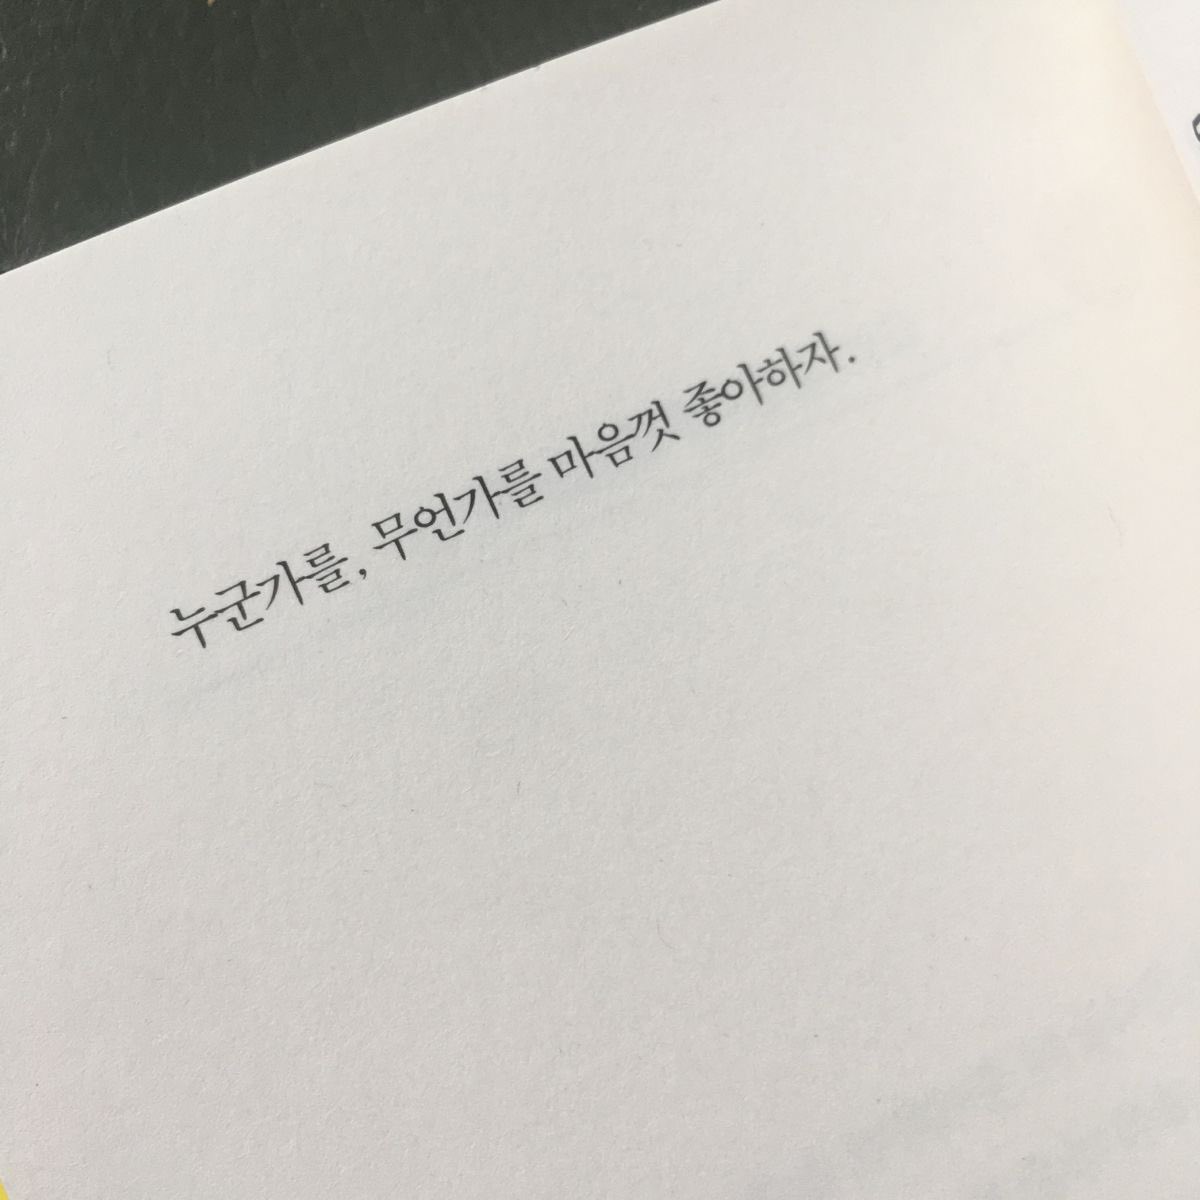 누군가를, 무언가를 마음껏 좋아하자.